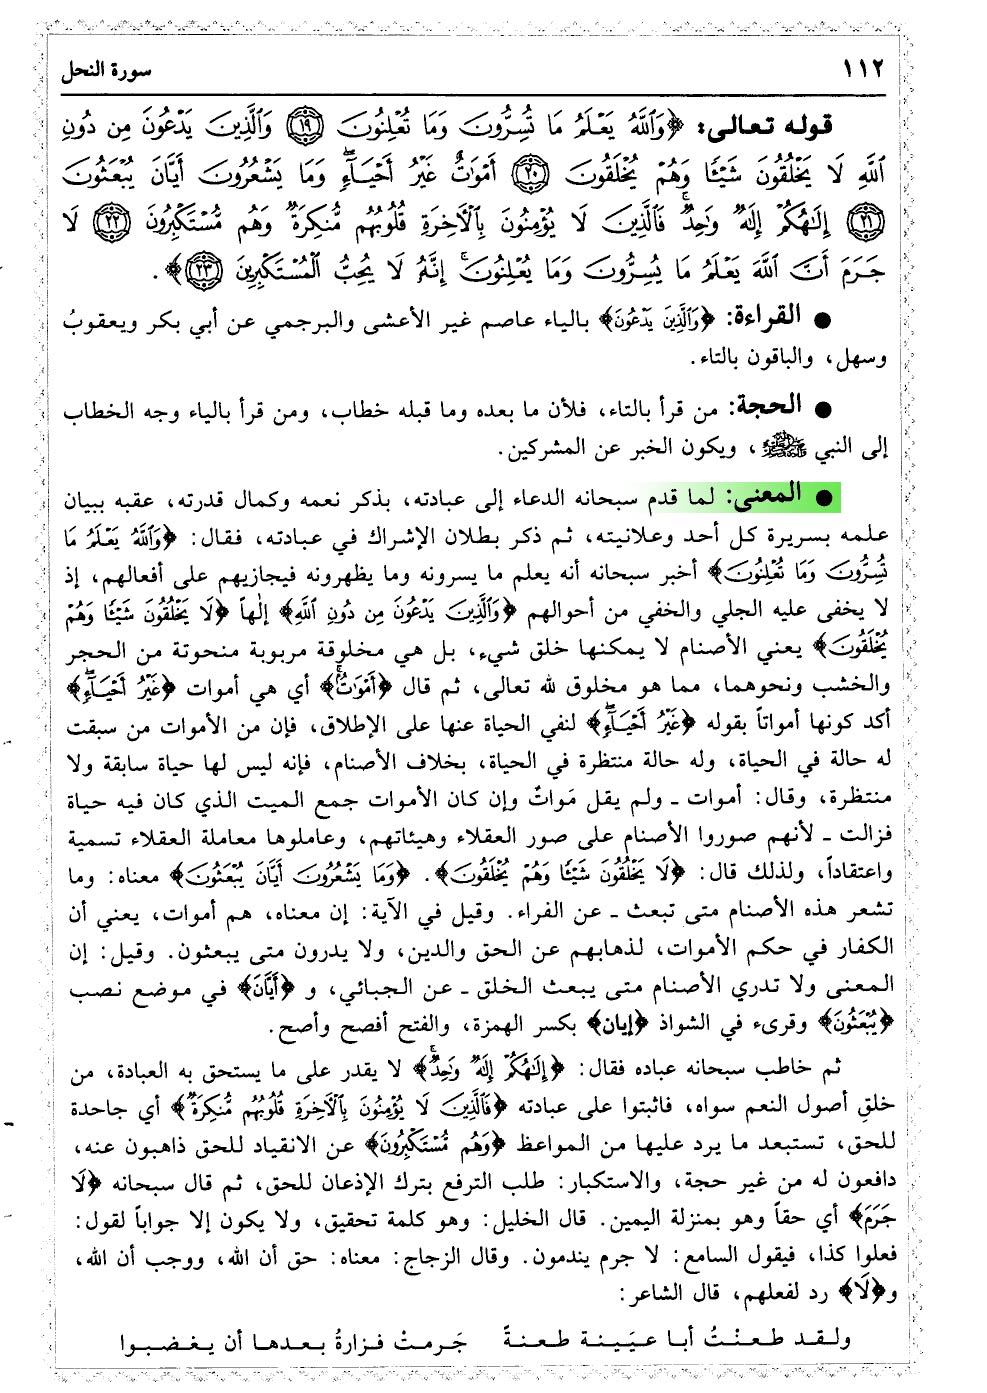 ١١٢ سورة النحل
قوله تعالى: ﴿وَٱللَّهُ يَعْلَمُ مَا تُسِرُّونَ وَمَا تُعْلِنُونَ ١٩ وَٱلَّذِينَ يَدْعُونَ مِن دُونِ
ٱللَّهِ لَا يَخْلُقُونَ شَيْـًٔا وَهُمْ يُخْلَقُونَ ٢٠ أَمْوَٰتٌ غَيْرُ أَحْيَآءٍۖ وَمَا يَشْعُرُونَ أَيَّانَ يُبْعَثُونَ
٢١ إِلَٰهُكُمْ إِلَٰهٌ وَٰحِدٌۚ فَٱلَّذِينَ لَا يُؤْمِنُونَ بِٱلْآخِرَةِ قُلُوبُهُم مُّنكِرَةٌ وَهُم مُّسْتَكْبِرُونَ ٢٢ لَا
جَرَمَ أَنَّ ٱللَّهَ يَعْلَمُ مَا يُسِرُّونَ وَمَا يُعْلِنُونَۚ إِنَّهُۥ لَا يُحِبُّ ٱلْمُسْتَكْبِرِينَ ٢٣﴾.
● القراءة: ﴿وَٱلَّذِينَ يَدْعُونَ﴾ بالياء عاصم غير الأعشى والبرجمي عن أبي بكر ويعقوبُ
وسهل، والباقون بالتاء.
● الحجة: من قرأ بالتاء، فلأن ما بعده وما قبله خطاب، ومن قرأ بالياء وجه الخطاب
إلى النبي ﷺ، ويكون الخبر عن المشركين.
● المعنى: لما قدم سبحانه الدعاء إلى عبادته، بذكر نعمه وكمال قدرته، عقبه ببيان
علمه بسريرة كل أحد وعلانيته، ثم ذكر بطلان الإشراك في عبادته، فقال: ﴿وَٱللَّهُ يَعْلَمُ مَا
تُسِرُّونَ وَمَا تُعْلِنُونَ﴾ أخبر سبحانه أنه يعلم ما يسرونه وما يظهرونه فيجازيهم على أفعالهم، إذ
لا يخفى عليه الجلي والخفي من أحوالهم ﴿وَٱلَّذِينَ يَدْعُونَ مِن دُونِ ٱللَّهِ﴾ إلٰهاً ﴿لَا يَخْلُقُونَ شَيْـًٔا وَهُمْ
يُخْلَقُونَ﴾ يعني الأصنام لا يمكنها خلق شيء، بل هي مخلوقة مربوبة منحوتة من الحجر
والخشب ونحوهما، مما هو مخلوق لله تعالى، ثم قال ﴿أَمْوَٰتٌ﴾ أي هي أموات ﴿غَيْرُ أَحْيَآءٍۖ﴾
أكد كونها أمواتاً بقوله ﴿غَيْرُ أَحْيَآءٍۖ﴾ لنفي الحياة عنها على الإطلاق، فإن من الأموات من سبقت
له حالة في الحياة، وله حالة منتظرة في الحياة، بخلاف الأصنام، فإنه ليس لها حياة سابقة ولا
منتظرة، وقال: أموات ـ ولم يقل مَواتٌ وإن كان الأموات جمع الميت الذي كان فيه حياة
فزالت ـ لأنهم صوروا الأصنام على صور العقلاء وهيئاتهم، وعاملوها معاملة العقلاء تسمية
واعتقاداً، ولذلك قال: ﴿لَا يَخْلُقُونَ شَيْـًٔا وَهُمْ يُخْلَقُونَ﴾. ﴿وَمَا يَشْعُرُونَ أَيَّانَ يُبْعَثُونَ﴾ معناه: وما
تشعر هذه الأصنام متى تبعث ـ عن الفراء. وقيل في الآية: إن معناه، هم أموات، يعني أن
الكفار في حكم الأموات، لذهابهم عن الحق والدين، ولا يدرون متى يبعثون. وقيل: إن
المعنى ولا تدري الأصنام متى يبعث الخلق ـ عن الجبائي، و﴿أَيَّانَ﴾ في موضع نصب
﴿يُبْعَثُونَ﴾ وقرىء في الشواذ ﴿إيان﴾ بكسر الهمزة، والفتح أفصح وأصح.
ثم خاطب سبحانه عباده فقال: ﴿إِلَٰهُكُمْ إِلَٰهٌ وَٰحِدٌۚ﴾ لا يقدر على ما يستحق به العبادة، من
خلقِ أصول النعم سواه، فاثبتوا على عبادته ﴿فَٱلَّذِينَ لَا يُؤْمِنُونَ بِٱلْآخِرَةِ قُلُوبُهُم مُّنكِرَةٌ﴾ أي جاحدة
للحق، تستبعد ما يرد عليها من المواعظ ﴿وَهُم مُّسْتَكْبِرُونَ﴾ عن الانقياد للحق ذاهبون عنه،
دافعون له من غير حجة، والاستكبار: طلب الترفع بترك الإذعان للحق، ثم قال سبحانه ﴿لَا
جَرَمَ﴾ أي حقاً وهو بمنزلة اليمين. قال الخليل: وهو كلمة تحقيق، ولا يكون إلا جواباً لقول:
فعلوا كذا، فيقول السامع: لا جرم يندمون. وقال الزجاج: معناه: حق أن الله، ووجب أن الله،
و﴿لَا﴾ رد لفعلهم، قال الشاعر:
ولـقـد طـعـنْـتُ أبـا عـيَـينـة طـعـنةً جَـرمـتْ فـزارةُ بـعـدهـا أن يـغـضـبـوا